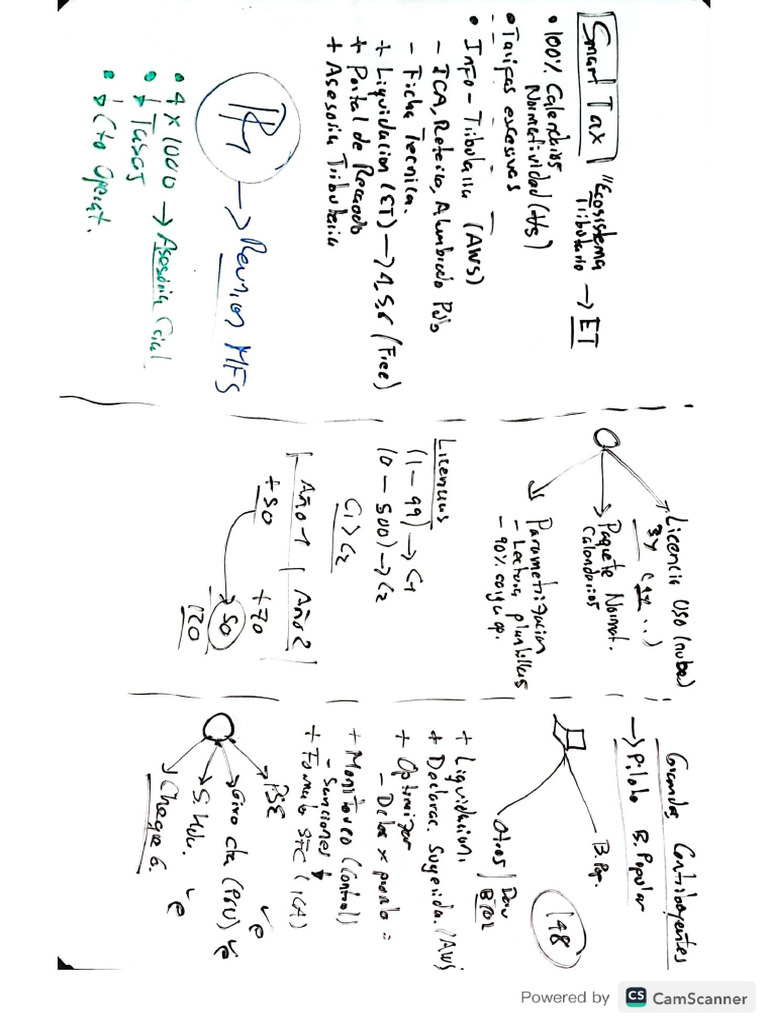 Smart Tax
"Ecosistema
Tributario → ET
• 100% Calendarios
Normatividad (H/S)
• Tarifas excesivas
• Info-Tributaria (AWS)
- ICA, Reteica, Alumbrado Pub
- Ficha Tecnica.
+ Liquidacion (ET) → 4,5,6 (Free)
+ Portal de Recaudo
+ Asesoria Tributaria
→ Reunion MFS
• 4 x 1000 → Asesoria Cial.
• ↓ Tasas
• ↓ Cto Operat.
Licencia Uso (nube)
Paquete Normat.
Calendarios
Parametrizacion
- Lectura plantillas
- 90%
Licencias
(1-99) → C1
10 - 500) → C2
C1 > C2
Año 1 | Año 2
+50 +70
50
120
Grandes Contribuyentes
→ Piloto B. Popular
B. Pop.
Otros
148
+ Liquidacion.
+ Declarac. Sugerida. (AWS
+ Optimizar
+ Monitoreo (Control)
- Sanciones
+ Formato (ICA)
PSE
Cheque G.